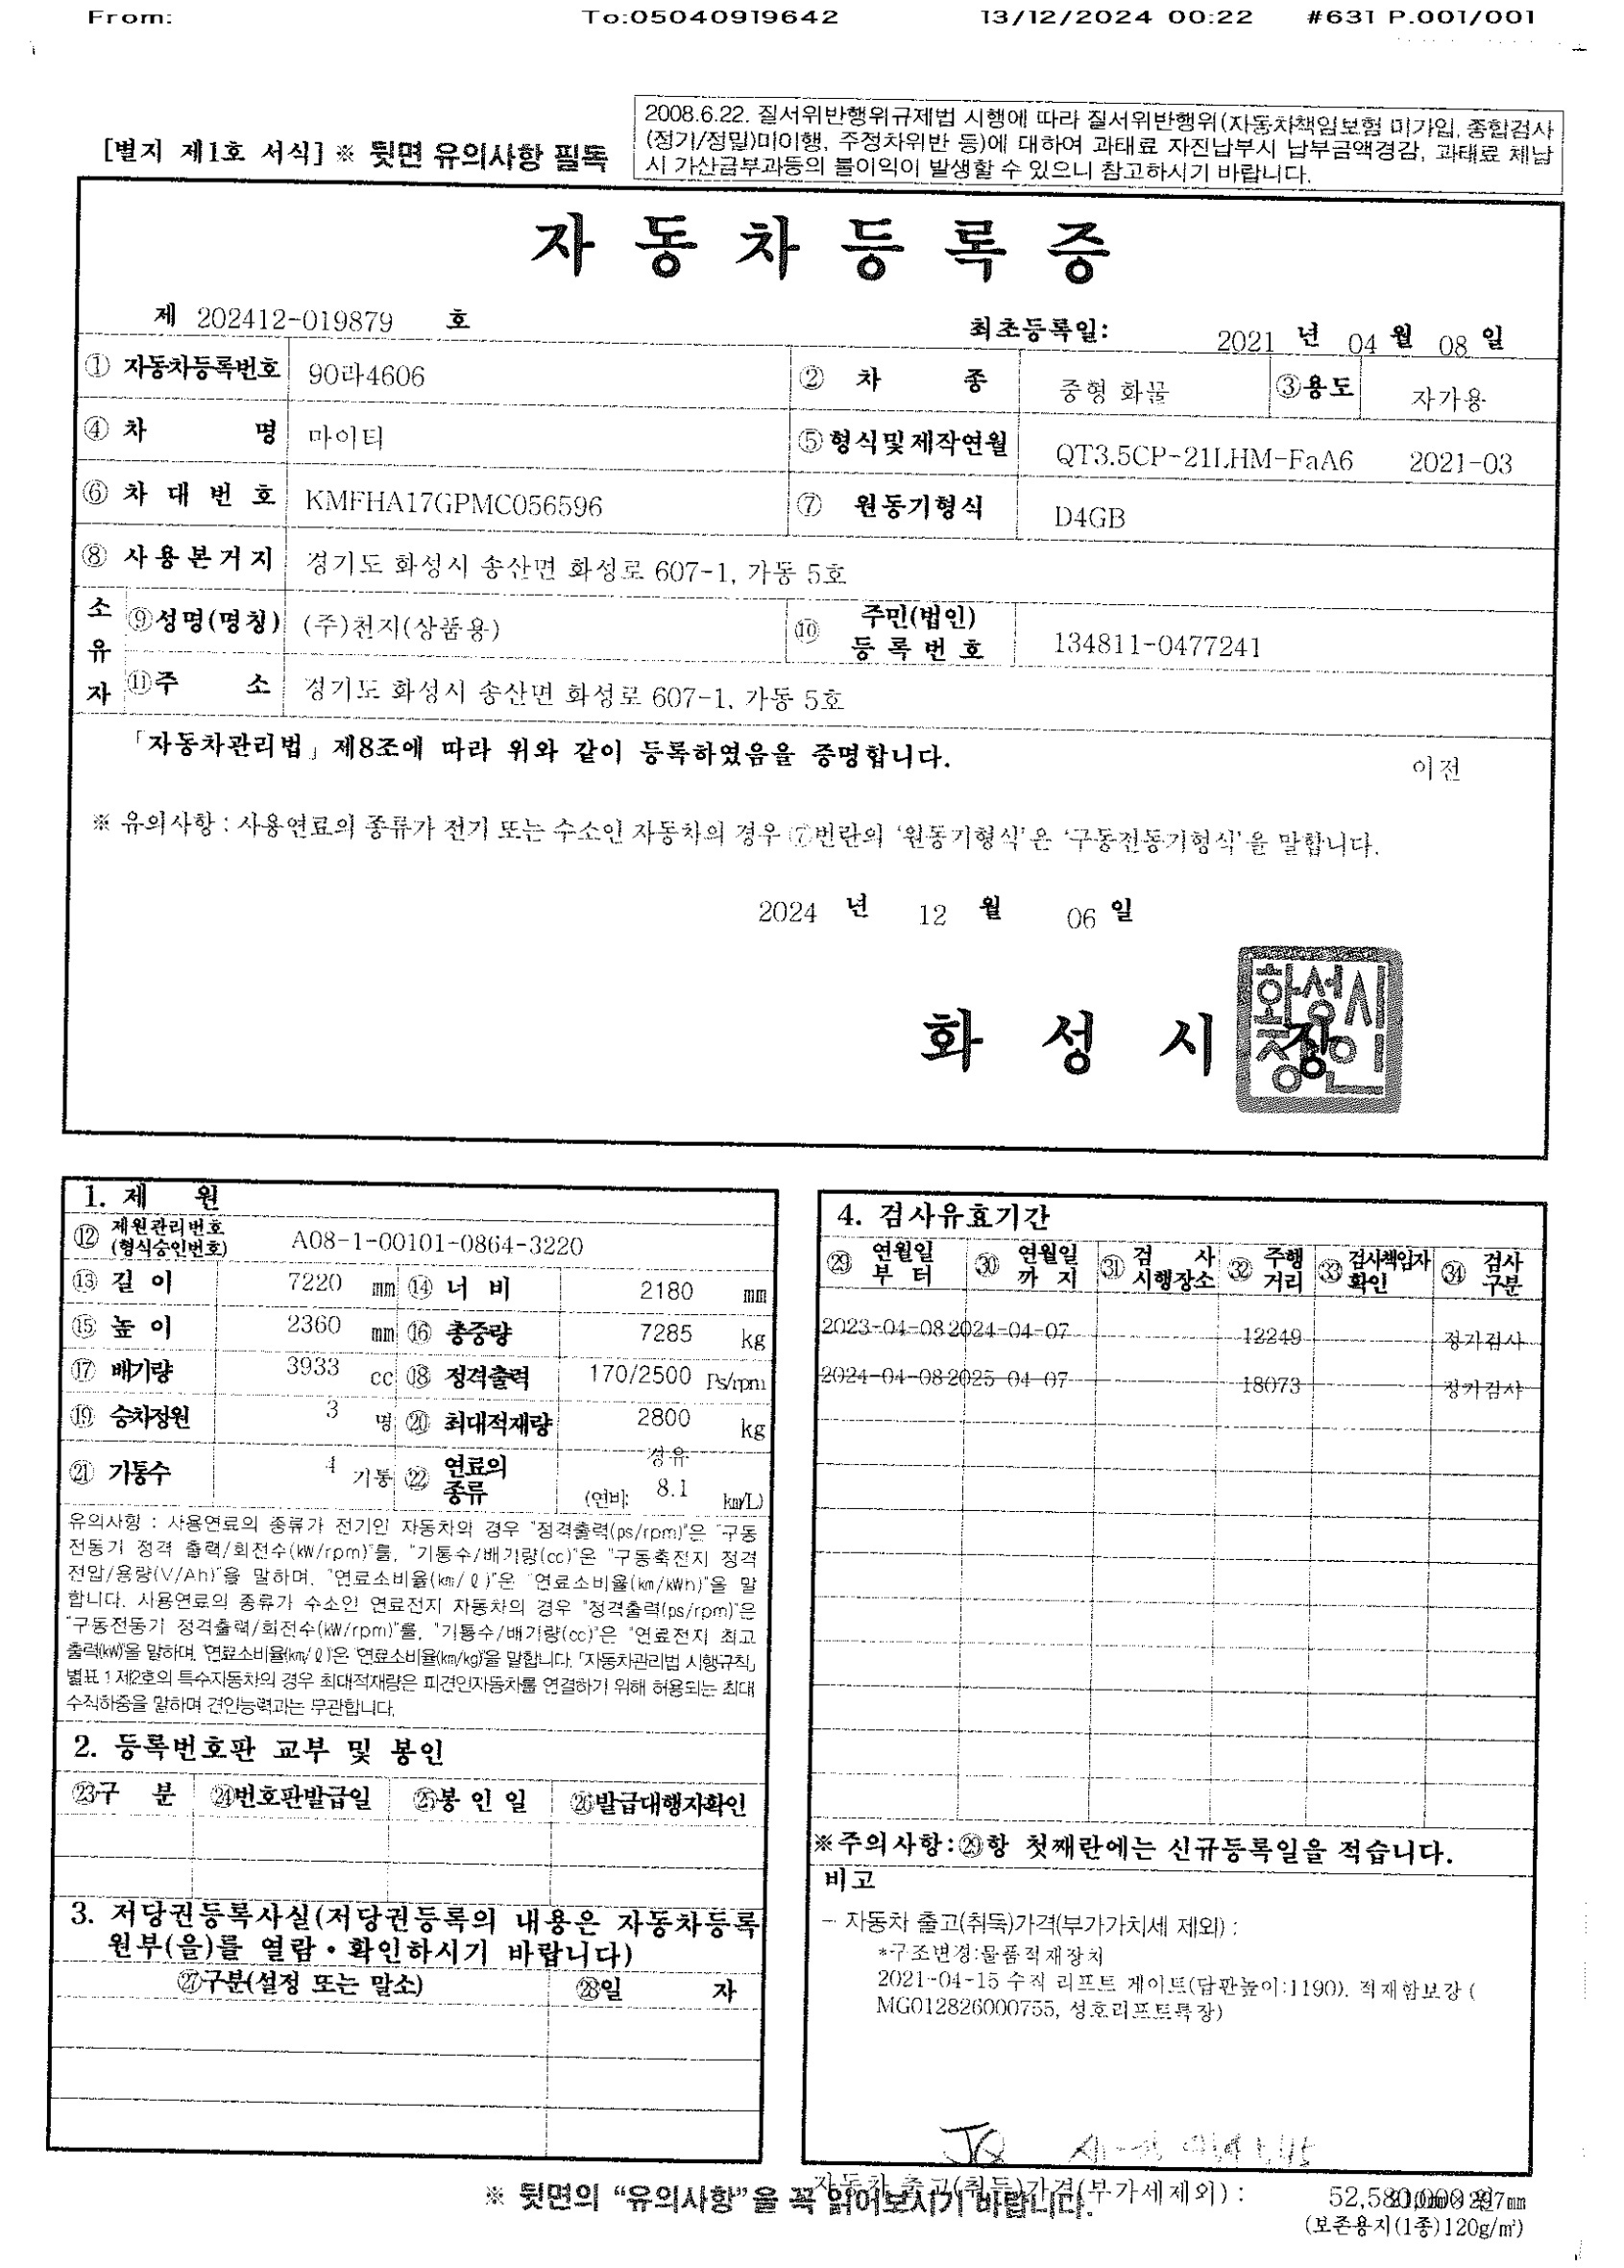 From: To:05040919642 13/12/2024 00:22 #631 P.001/001
[별지 제1호 서식] ※ 뒷면 유의사항 필독
2008.6.22. 질서위반행위규제법 시행에 따라 질서위반행위(자동차책임보험 미가입, 종합검사
(정기/정밀)미이행, 주정차위반 등)에 대하여 과태료 자진납부시 납부금액경감, 과태료 체납
시 가산금부과등의 불이익이 발생할 수 있으니 참고하시기 바랍니다.
자동차등록증
제 202412-019879 호 최초등록일: 2021 년 04 월 08 일
① 자동차등록번호 90라4606 ② 차 종 중형 화물 ③용도 자가용
④ 차 명 마이티 ⑤형식및제작연월 QT3.5CP-21LHM-FaA6 2021-03
⑥ 차 대 번 호 KMFHA17GPMC056596 ⑦ 원동기형식 D4GB
⑧ 사용본거지 경기도 화성시 송산면 화성로 607-1, 가동 5호
소유자 ⑨성명(명칭) (주)천지(상품용) ⑩ 주민(법인)등록번호 134811-0477241
⑪주 소 경기도 화성시 송산면 화성로 607-1, 가동 5호
「자동차관리법」제8조에 따라 위와 같이 등록하였음을 증명합니다.
이전
※ 유의사항 : 사용연료의 종류가 전기 또는 수소인 자동차의 경우 ⑦번란의 '원동기형식'은 '구동전동기형식'을 말합니다.
2024 년 12 월 06 일
화 성 시 장
화성시
장인
1. 제 원
⑫ 제원관리번호 (형식승인번호) A08-1-00101-0864-3220
⑬ 길 이 7220 mm ⑭ 너 비 2180 mm
⑮ 높 이 2360 mm ⑯ 총중량 7285 kg
⑰ 배기량 3933 cc ⑱ 정격출력 170/2500 Ps/rpm
⑲ 승차정원 3 명 ⑳ 최대적재량 2800 kg
㉑ 기통수 4 기통 ㉒ 연료의 종류 경유 (연비: 8.1 km/L)
유의사항 : 사용연료의 종류가 전기인 자동차의 경우 "정격출력(ps/rpm)"은 "구동
전동기 정격 출력/회전수(kW/rpm)"를, "기통수/배기량(cc)"은 "구동축전지 정격
전압/용량(V/Ah)"을 말하며, "연료소비율(km/ℓ)"은 "연료소비율(km/kWh)"을 말
합니다. 사용연료의 종류가 수소인 연료전지 자동차의 경우 "정격출력(ps/rpm)"은
"구동전동기 정격출력/회전수(kW/rpm)"를, "기통수/배기량(cc)"은 "연료전지 최고
출력(kW)"을 말하며, "연료소비율(km/ℓ)"은 "연료소비율(km/kg)"을 말합니다. 「자동차관리법 시행규칙」
별표 1 제2호의 특수자동차의 경우 최대적재량은 피견인자동차를 연결하기 위해 허용되는 최대
수직하중을 말하며 견인능력과는 무관합니다.
2. 등록번호판 교부 및 봉인
㉓구 분 ㉔번호판발급일 ㉕봉 인 일 ㉖발급대행자확인
3. 저당권등록사실(저당권등록의 내용은 자동차등록
원부(을)를 열람・확인하시기 바랍니다)
㉗구분(설정 또는 말소) ㉘일 자
4. 검사유효기간
㉙ 연월일 부 터 ㉚ 연월일 까 지 ㉛ 검 사 시행장소 ㉜ 주행 거리 ㉝ 검사책임자 확인 ㉞ 검사 구분
2023-04-08 2024-04-07 12249 정기검사
2024-04-08 2025-04-07 18073 정기검사
※주의사항:㉙항 첫째란에는 신규등록일을 적습니다.
비고
- 자동차 출고(취득)가격(부가가치세 제외) :
*구조변경:물품적재장치
2021-04-15 수직 리프트 게이트(답판높이:1190). 적재함보강 (
MG012826000755, 성호리프트특장)
※ 뒷면의 "유의사항"을 꼭 읽어보시기 바랍니다.
자동차 출고(취득)가격(부가세제외) :
(보존용지(1종)120g/㎡)